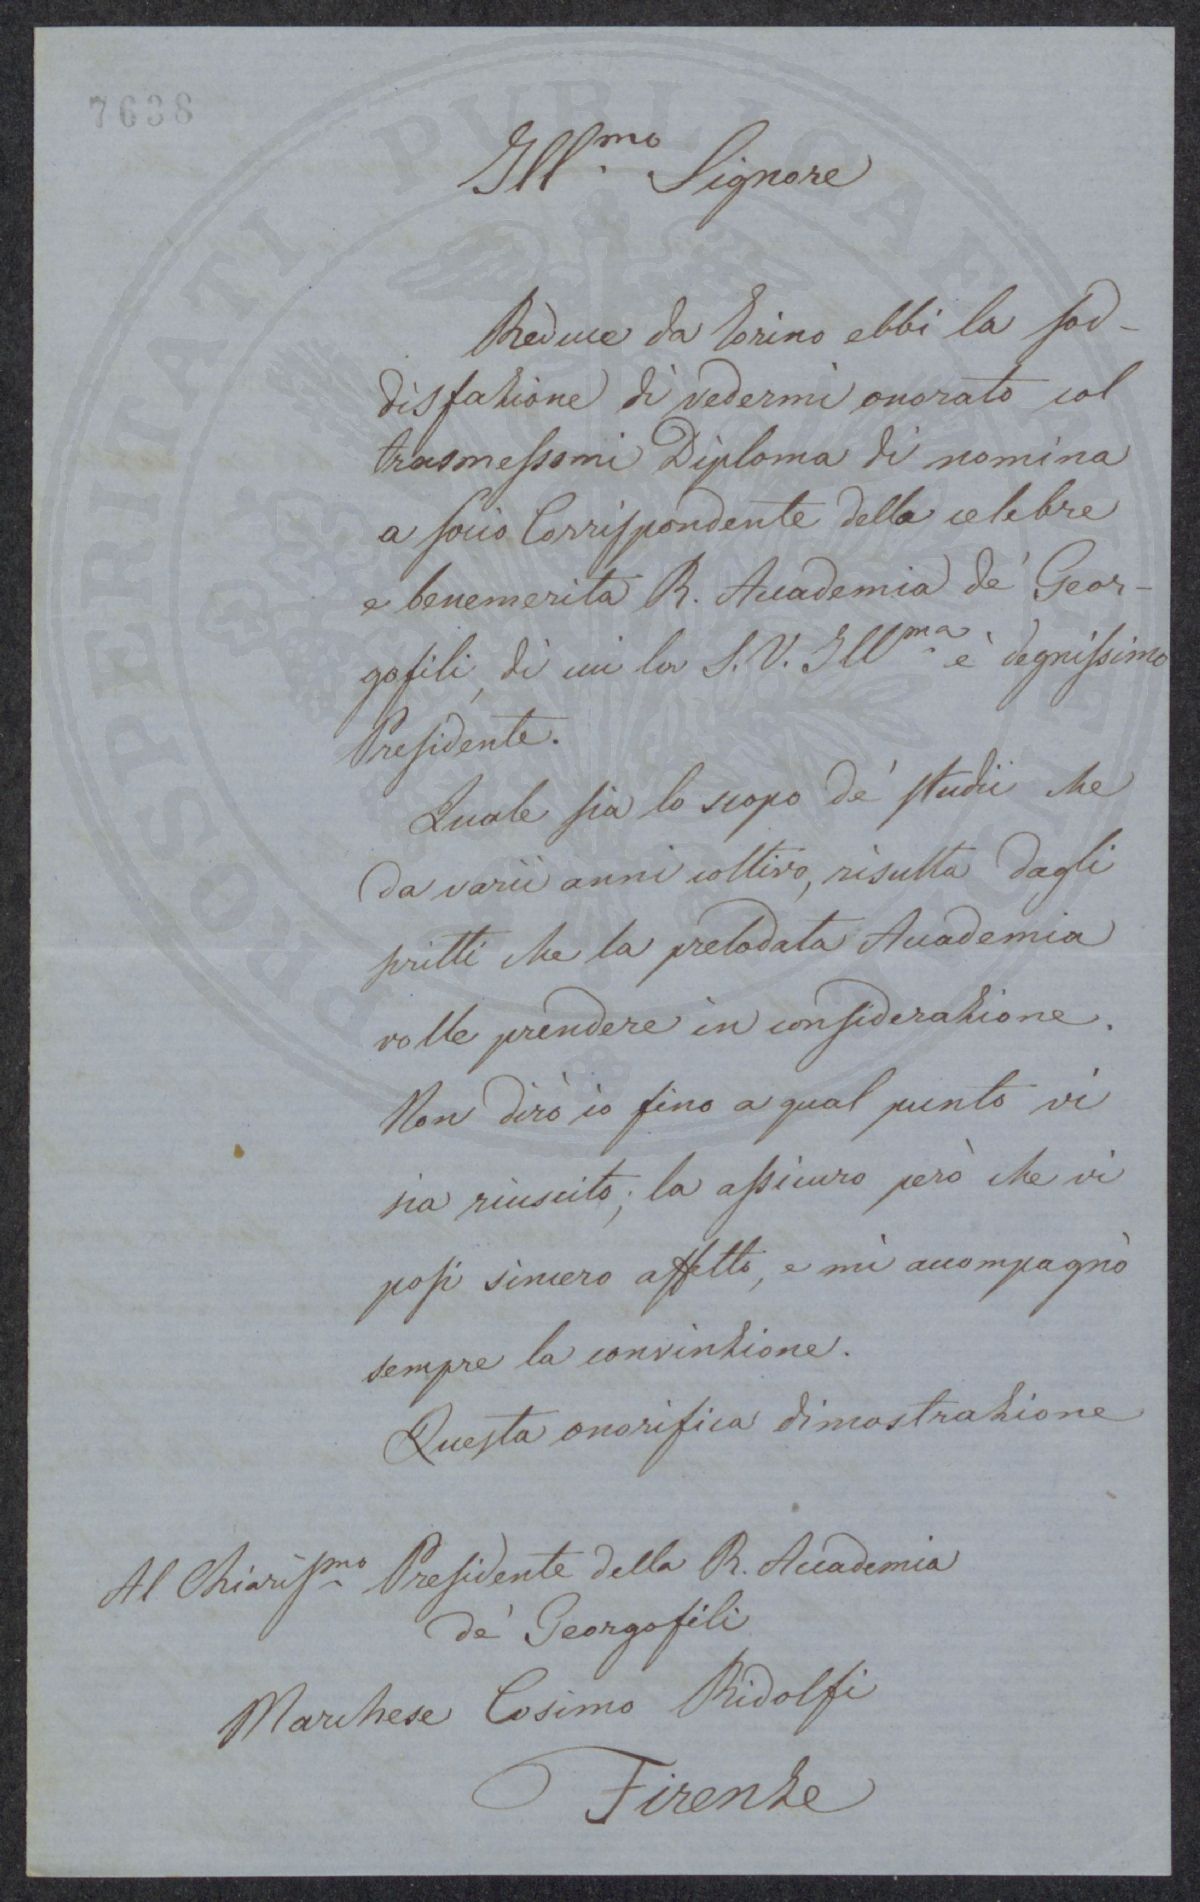 7638
Ill.mo Signore
Reduce da Torino ebbi la sod-
disfazione di vedermi onorato col
trasmessomi Diploma di nomina
a socio Corrispondente della celebre
e benemerita R. Accademia de' Geor-
gofili, di cui la S. V. Ill.ma è degnissimo
Presidente.
Quale sia lo scopo de' studii che
da varii anni coltivo, risulta dagli
scritti che la prelodata Accademia
volle prendere in considerazione.
Non dirò io fino a qual punto vi
sia riuscito; la assicuro però che vi
posi sincero affetto, e mi accompagnò
sempre la convinzione.
Questa onorifica dimostrazione
Al Chiariss.mo Presidente della R. Accademia
de' Georgofili
Marchese Cosimo Ridolfi
Firenze
PROSPERITATI PUBLICAE